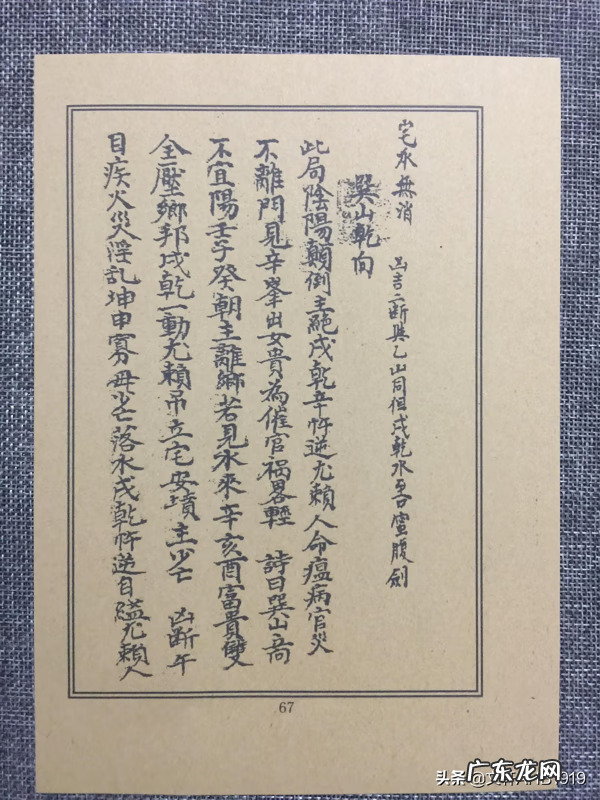 宅水無消 凶吉二断與乙山同但戌乾水腹劍
巽山乾向
此局陰陽顛倒主絕戌乾辛忤逆尤賴人命瘟病官災
不離門見辛峯出女貴為催官禍畧輕 詩曰巽山
不宜陽壬子癸朝主離鄉若見水來辛亥酉富貴雙
全壓鄉邦戌乾一動尤賴吊立宅安墳主少亡 凶断午
目疾火災淫乱坤申寡毋少亡落水戌乾忤逆自縊尤賴人
67
头条
919
广东龙网